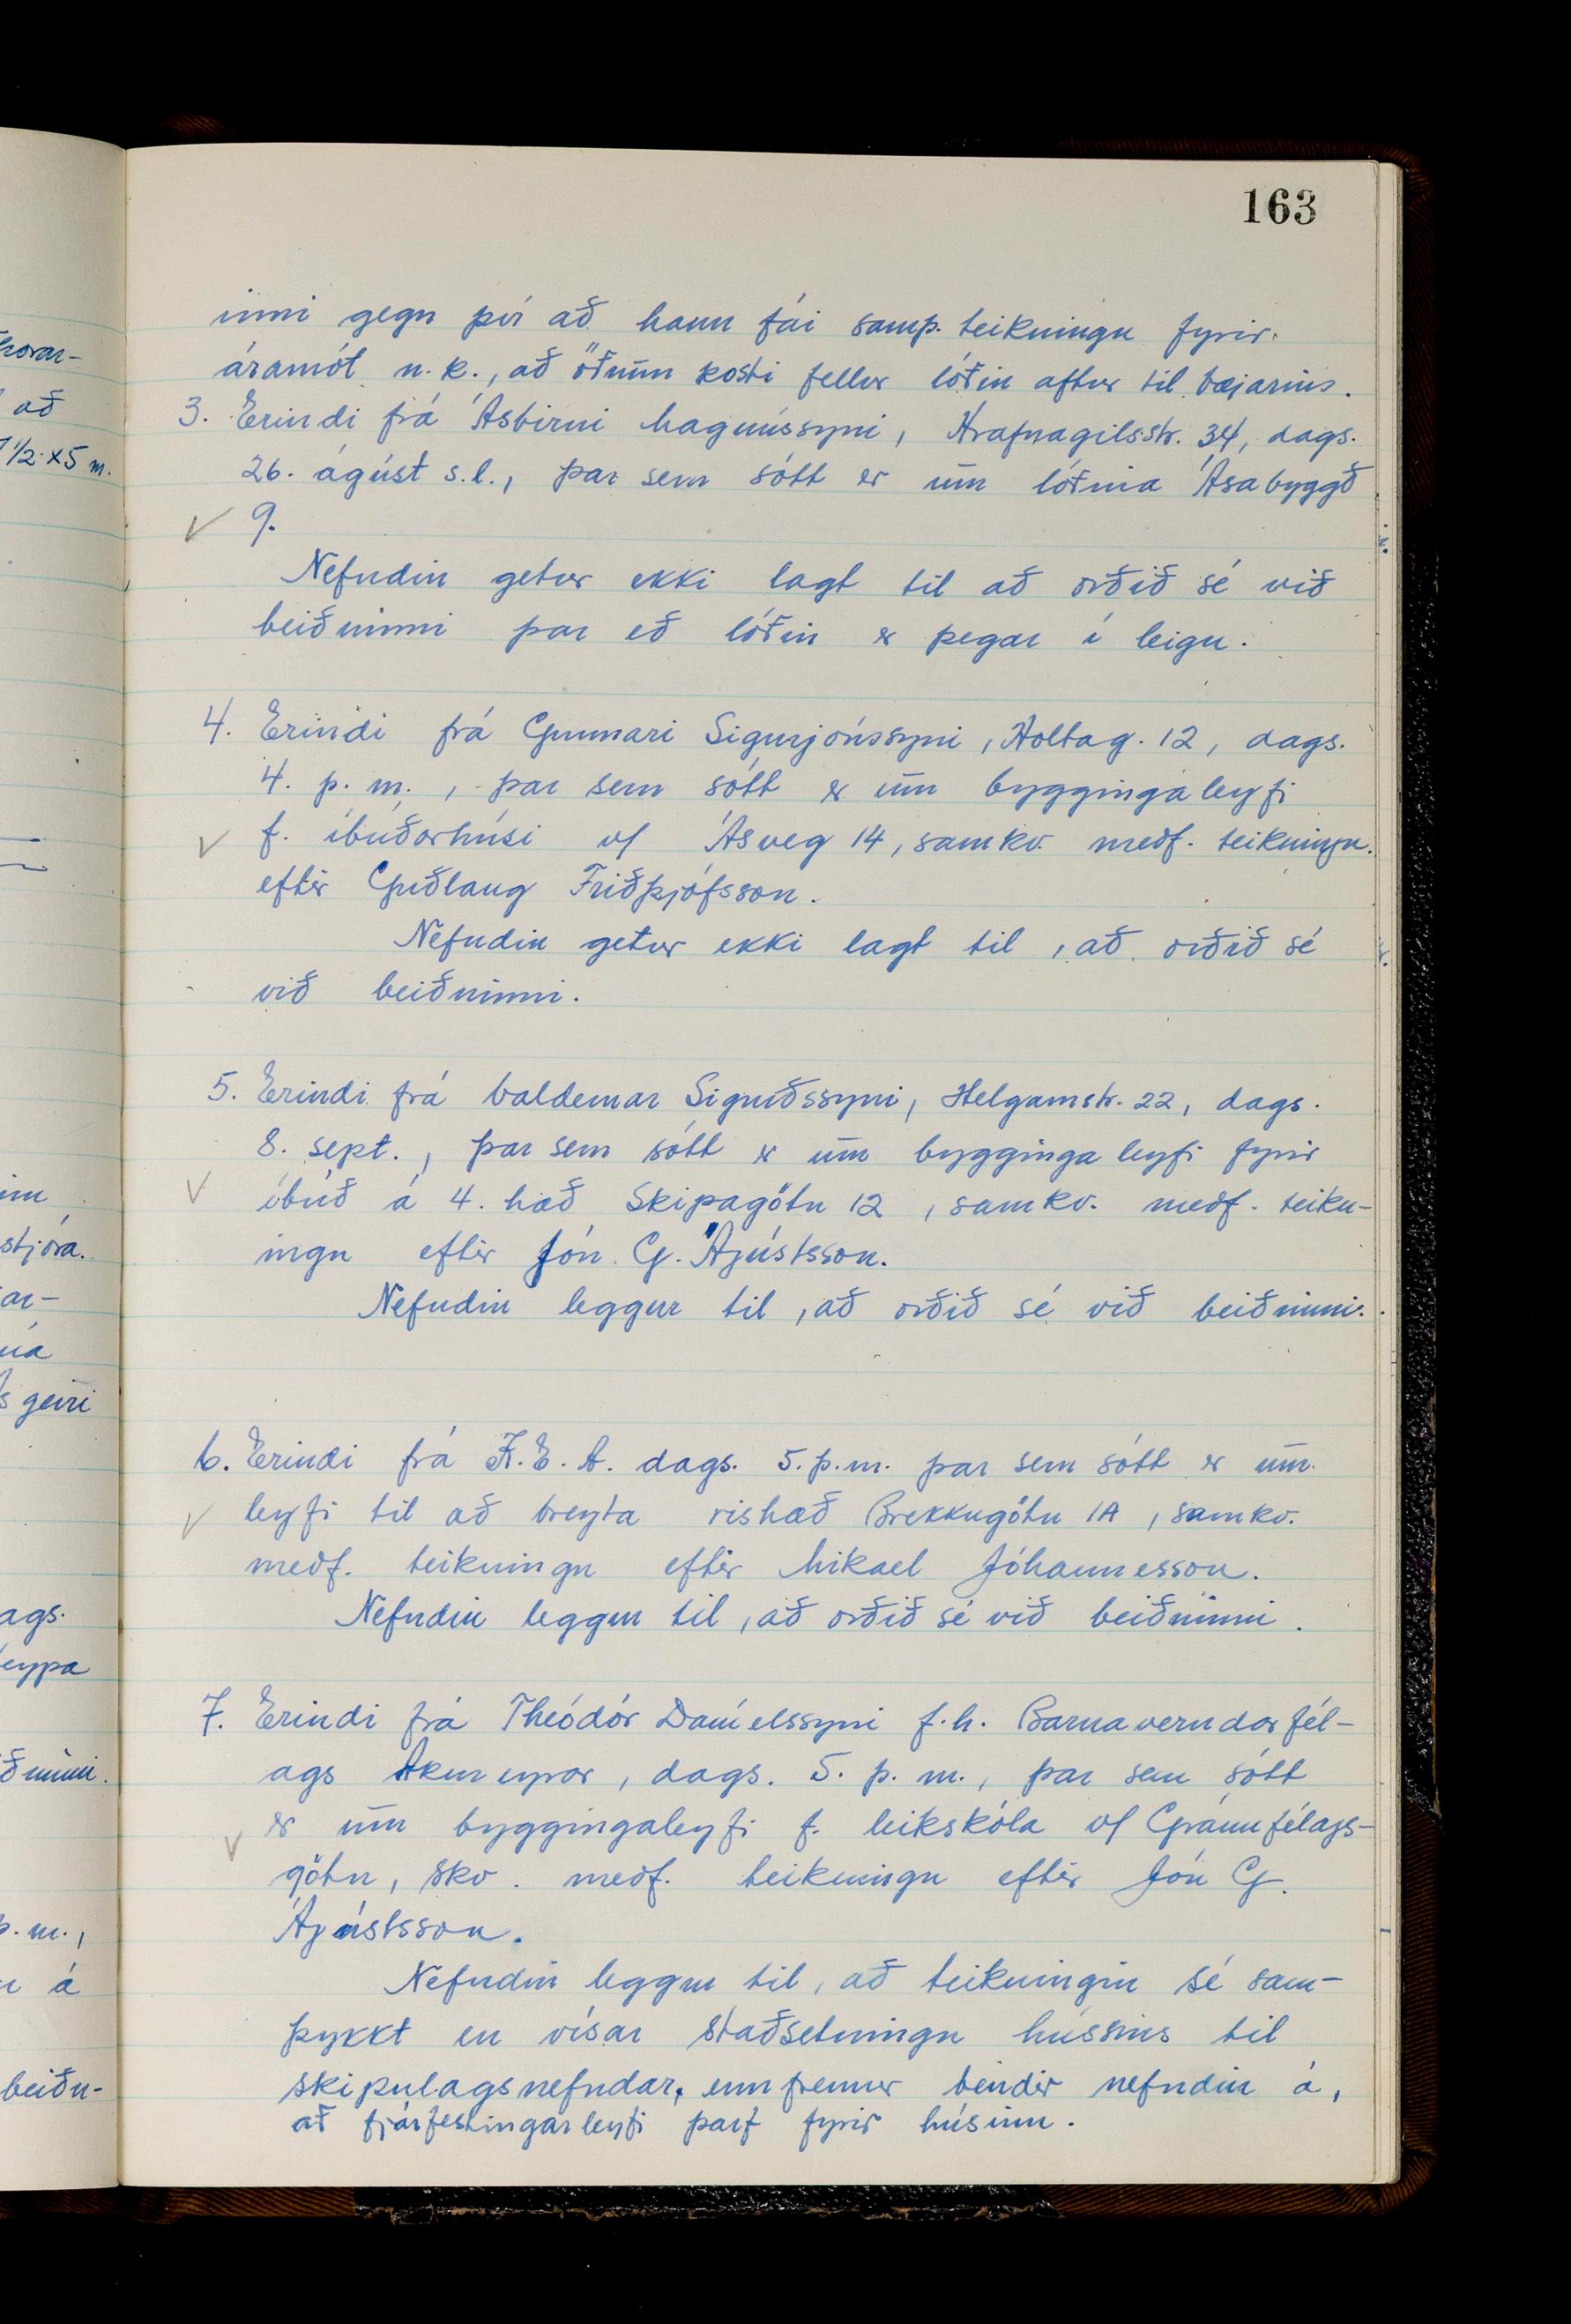 163
inni gegn því að hann fái samþ. teikningu fyrir
áramót n.k., að öðrum kosti fellur lóðin aftur til bæjarins.
3. Erindi frá Ásbirni Magnússyni, Hrafnagilsstr. 34, dags.
26. ágúst s.l., þar sem sótt er um lóðina Ásabyggð
9.
Nefndin getur ekki lagt til að orðið sé við
beiðninni þar eð lóðin er þegar í leigu.
4. Erindi frá Gunnari Sigurjónssyni, Holtag. 12, dags.
4. þ. m., þar sem sótt er um byggingaleyfi
f. íbúðarhúsi v/ Ásveg 14, samkv. meðf. teikningu
eftir Guðlaug Friðþjófsson.
Nefndin getur ekki lagt til, að orðið sé
við beiðninni.
5. Erindi frá Valdemar Sigurðssyni, Helgamstr. 22, dags.
8. sept., þar sem sótt er um byggingaleyfi fyrir
íbúð á 4. hæð Skipagötu 12, samkv. meðf. teikn-
ingu eftir Jón G. Ágústsson.
Nefndin leggur til, að orðið sé við beiðninni.
6. Erindi frá K.E.A. dags. 5. þ.m. þar sem sótt er um
leyfi til að breyta rishæð Brekkugötu 1A, samkv.
meðf. teikningu eftir Mikael Jóhannesson.
Nefndin leggur til, að orðið sé við beiðninni.
7. Erindi frá Theódór Daníelssyni f.h. Barnaverndarfél-
ags Akureyrar, dags. 5. þ. m., þar sem sótt
er um byggingaleyfi f. leikskóla v/ Gránufélags-
götu, skv. meðf. teikningu eftir Jón G.
Ágústsson.
Nefndin leggur til, að teikningin sé sam-
þykkt en vísar staðsetningu hússins til
skipulagsnefndar, ennfremur bendir nefndin á,
að fjárfestingarleyfi þarf fyrir húsinu.